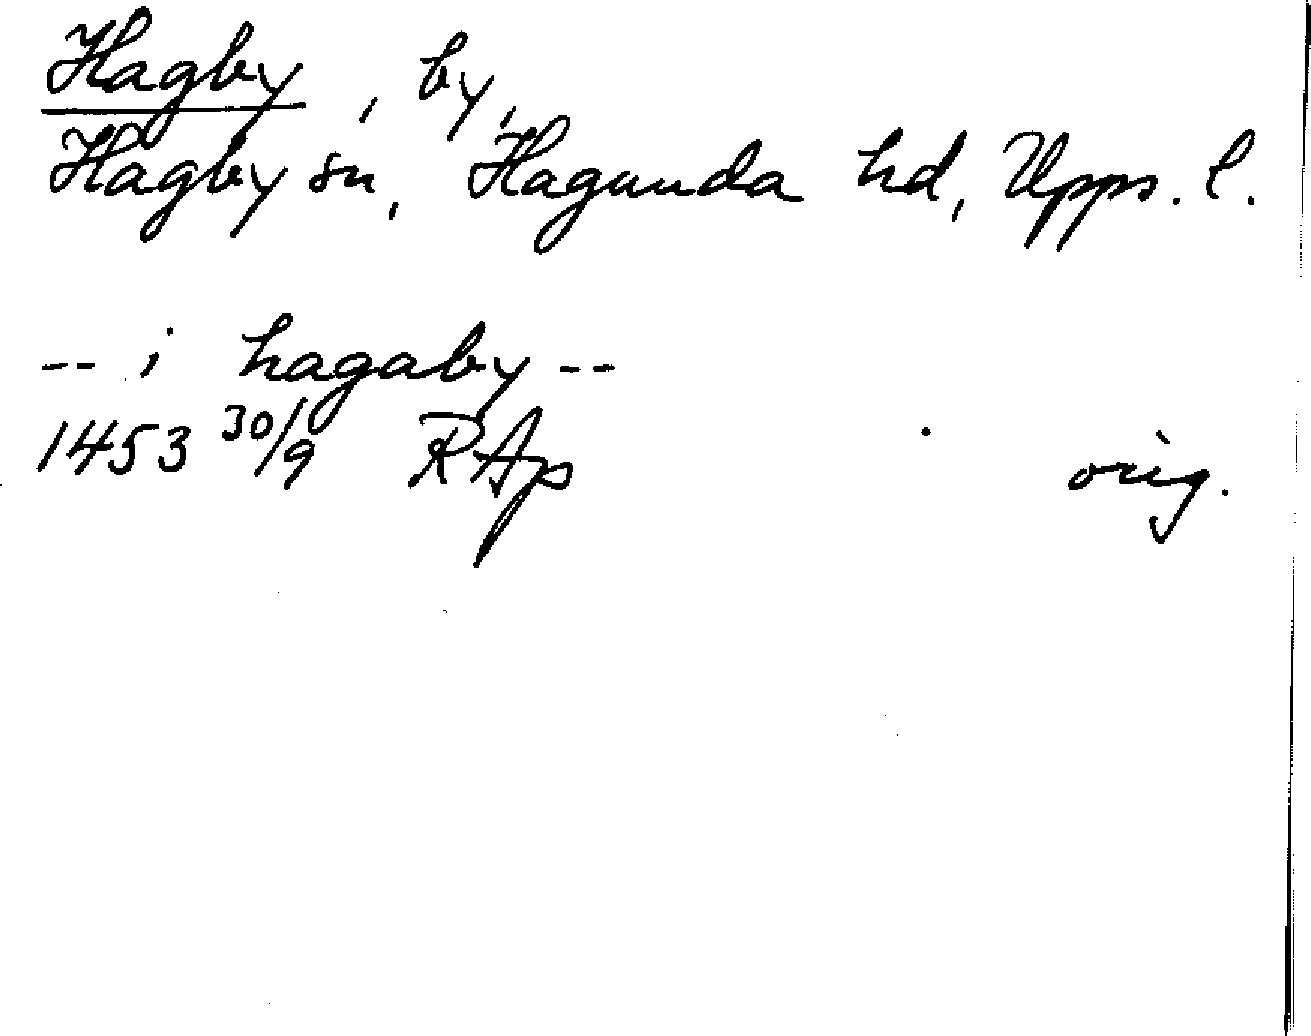 Hagby, by,
Hagby sn, Hagunda hd, Upps. l.
-- i hagaby --
1453 30/9 RAp orig.